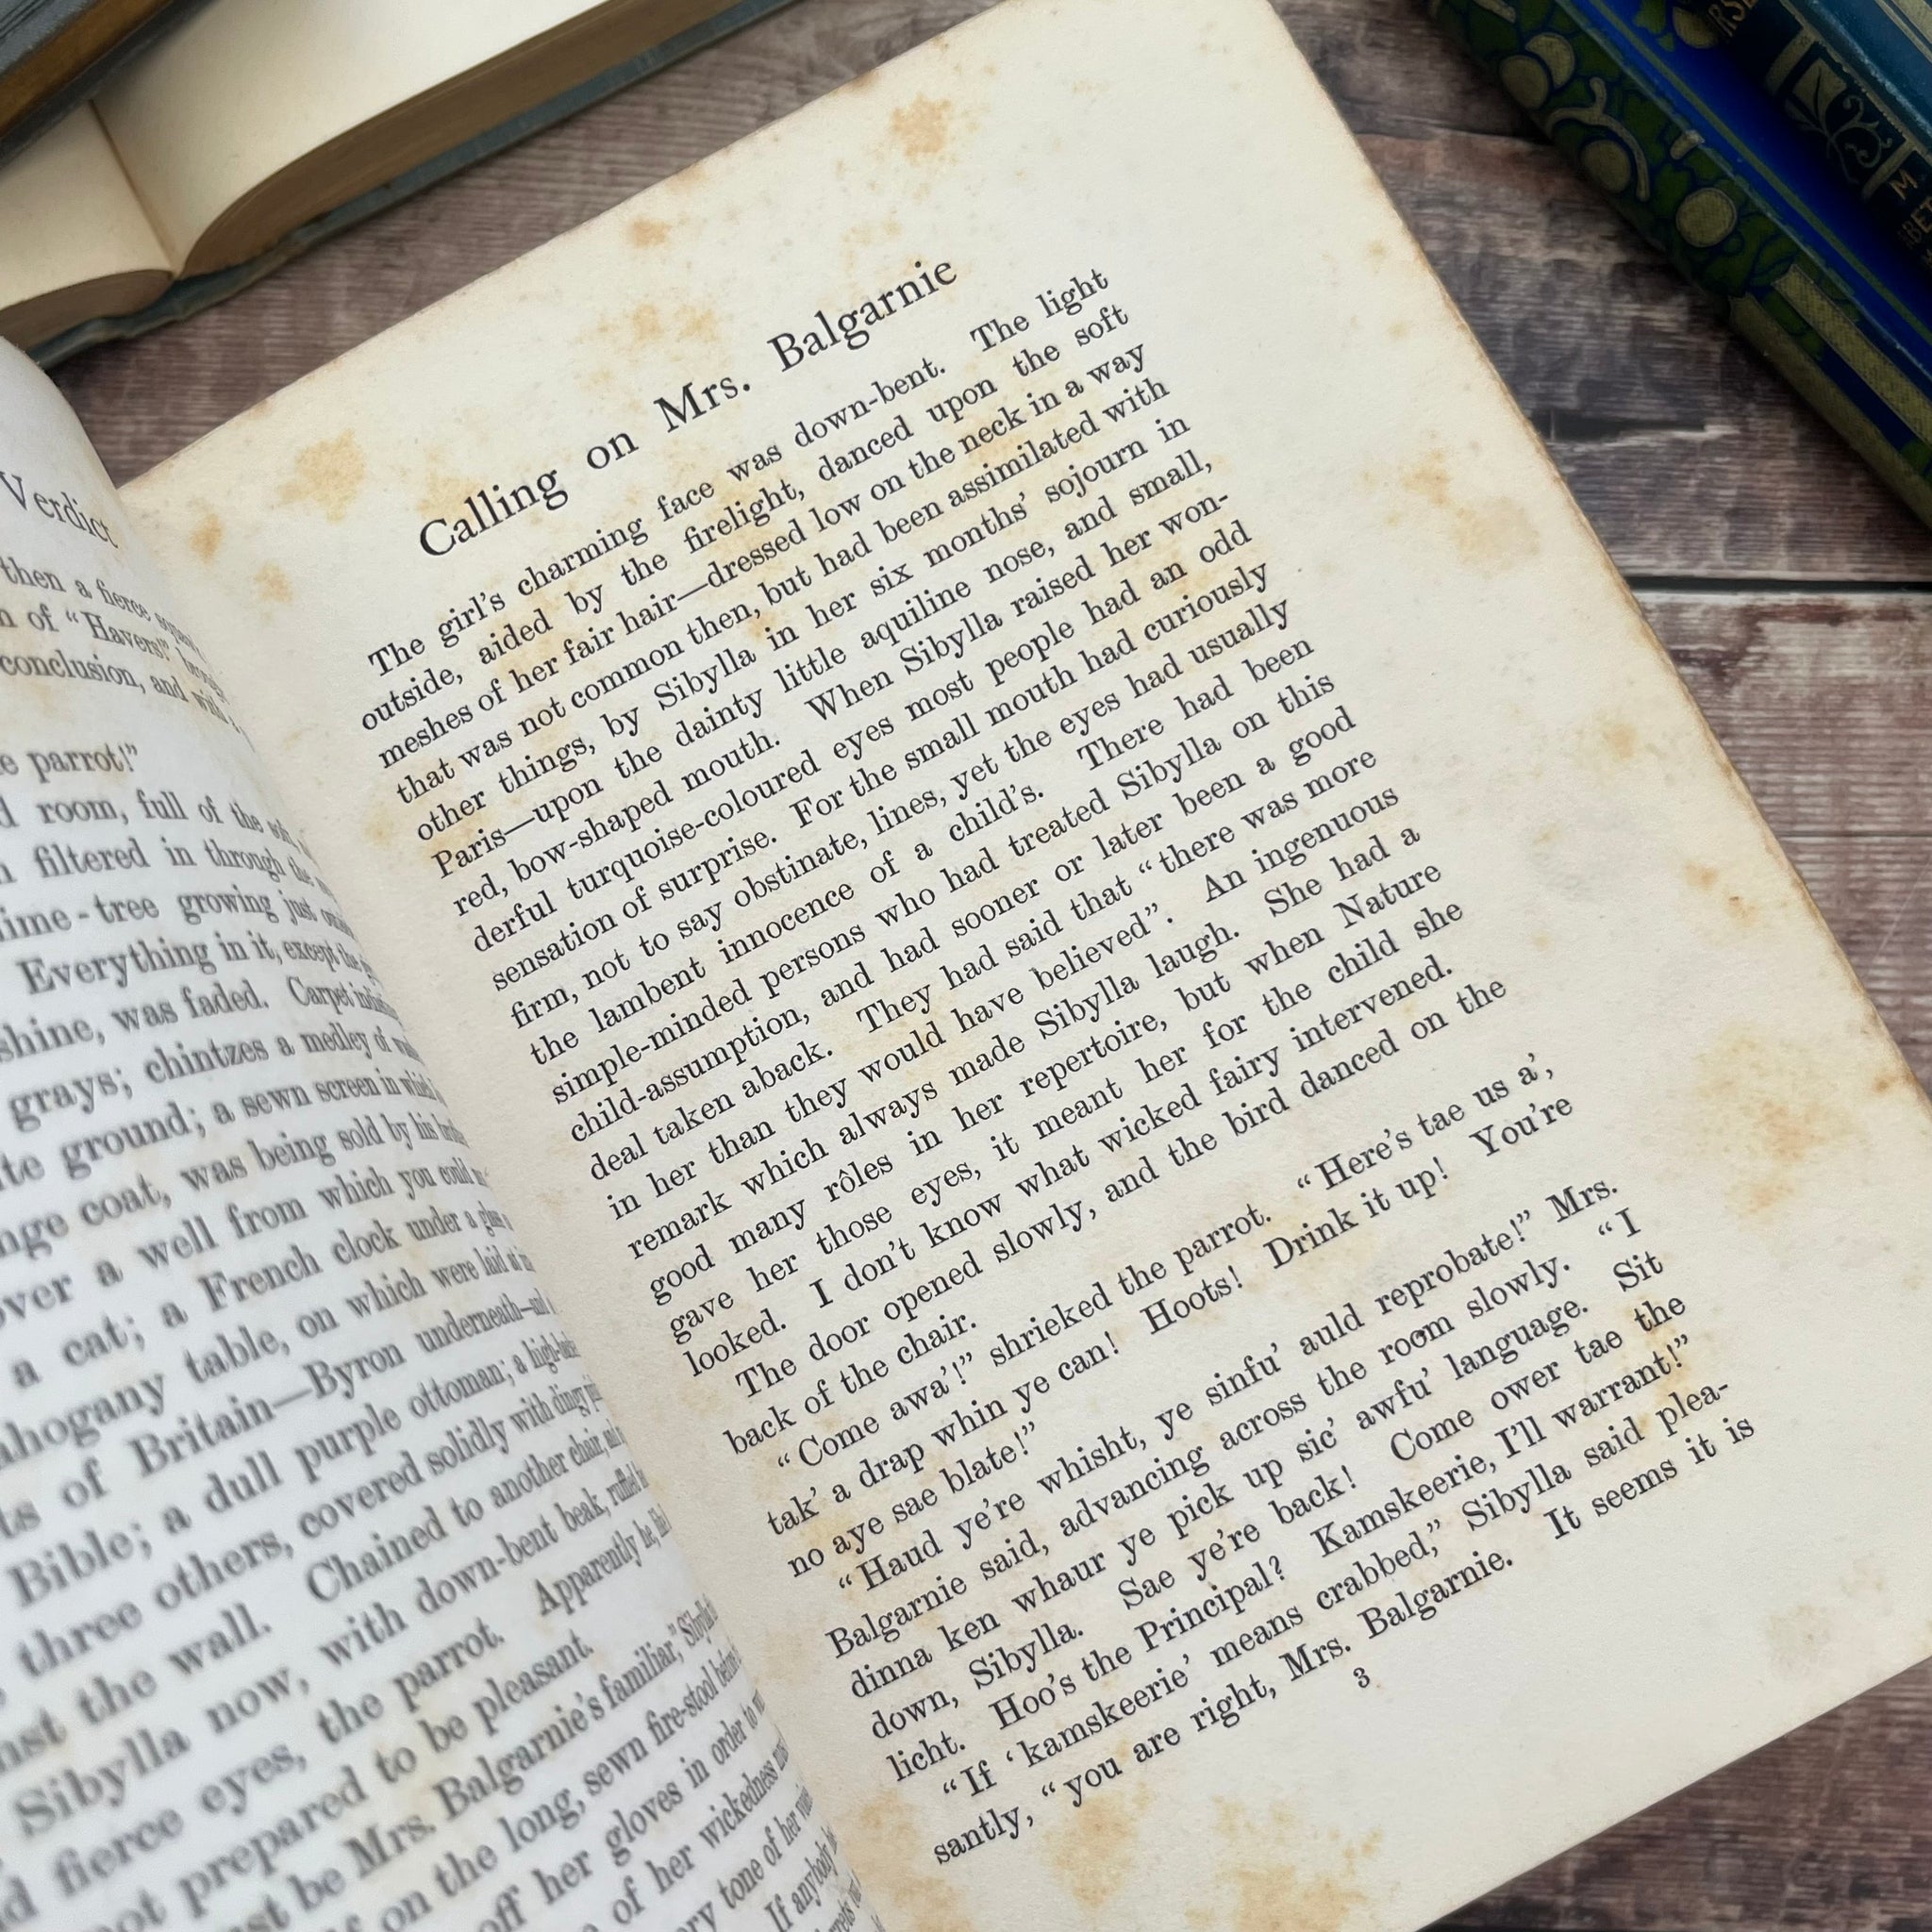 Verdict
then a fierce
of "Havers!"
conclusion, and
parrot!"
room, full of the
filtered in through the
lime-tree growing just
Everything in it, except the
shine, was faded. Carpet
grays; chintzes a medley of
ground; a sewn screen in which
coat, was being sold by his
over a well from which you could
a cat; a French clock under a
mahogany table, on which were laid
of Britain—Byron underneath—
Bible; a dull purple ottoman; a
three others, covered solidly with dingy
the wall. Chained to another chair,
Sibylla now, with down-bent beak, ruffled
fierce eyes, the parrot. Apparently he,
not prepared to be pleasant.
be Mrs. Balgarnie's familiar," Sibylla
on the long, sewn fire-stool
off her gloves in order to
of her wickedness
tone of her
If anybody
Calling on Mrs. Balgarnie
The girl's charming face was down-bent. The light
outside, aided by the firelight, danced upon the soft
meshes of her fair hair—dressed low on the neck in a way
that was not common then, but had been assimilated with
other things, by Sibylla in her six months' sojourn in
Paris—upon the dainty little aquiline nose, and small,
red, bow-shaped mouth. When Sibylla raised her won-
derful turquoise-coloured eyes most people had an odd
sensation of surprise. For the small mouth had curiously
firm, not to say obstinate, lines, yet the eyes had usually
the lambent innocence of a child's. There had been
simple-minded persons who had treated Sibylla on this
child-assumption, and had sooner or later been a good
deal taken aback. They had said that "there was more
in her than they would have believed". An ingenuous
remark which always made Sibylla laugh. She had a
good many rôles in her repertoire, but when Nature
gave her those eyes, it meant her for the child she
looked. I don't know what wicked fairy intervened.
The door opened slowly, and the bird danced on the
back of the chair.
"Come awa'!" shrieked the parrot. "Here's tae us a',
tak' a drap whin ye can! Hoots! Drink it up! You're
no aye sae blate!"
"Haud ye're whisht, ye sinfu' auld reprobate!" Mrs.
Balgarnie said, advancing across the room slowly. "I
dinna ken whaur ye pick up sic' awfu' language. Sit
down, Sibylla. Sae ye're back! Come ower tae the
licht. Hoo's the Principal? Kamskeerie, I'll warrant!"
"If 'kamskeerie' means crabbed," Sibylla said plea-
santly, "you are right, Mrs. Balgarnie. It seems it is
3